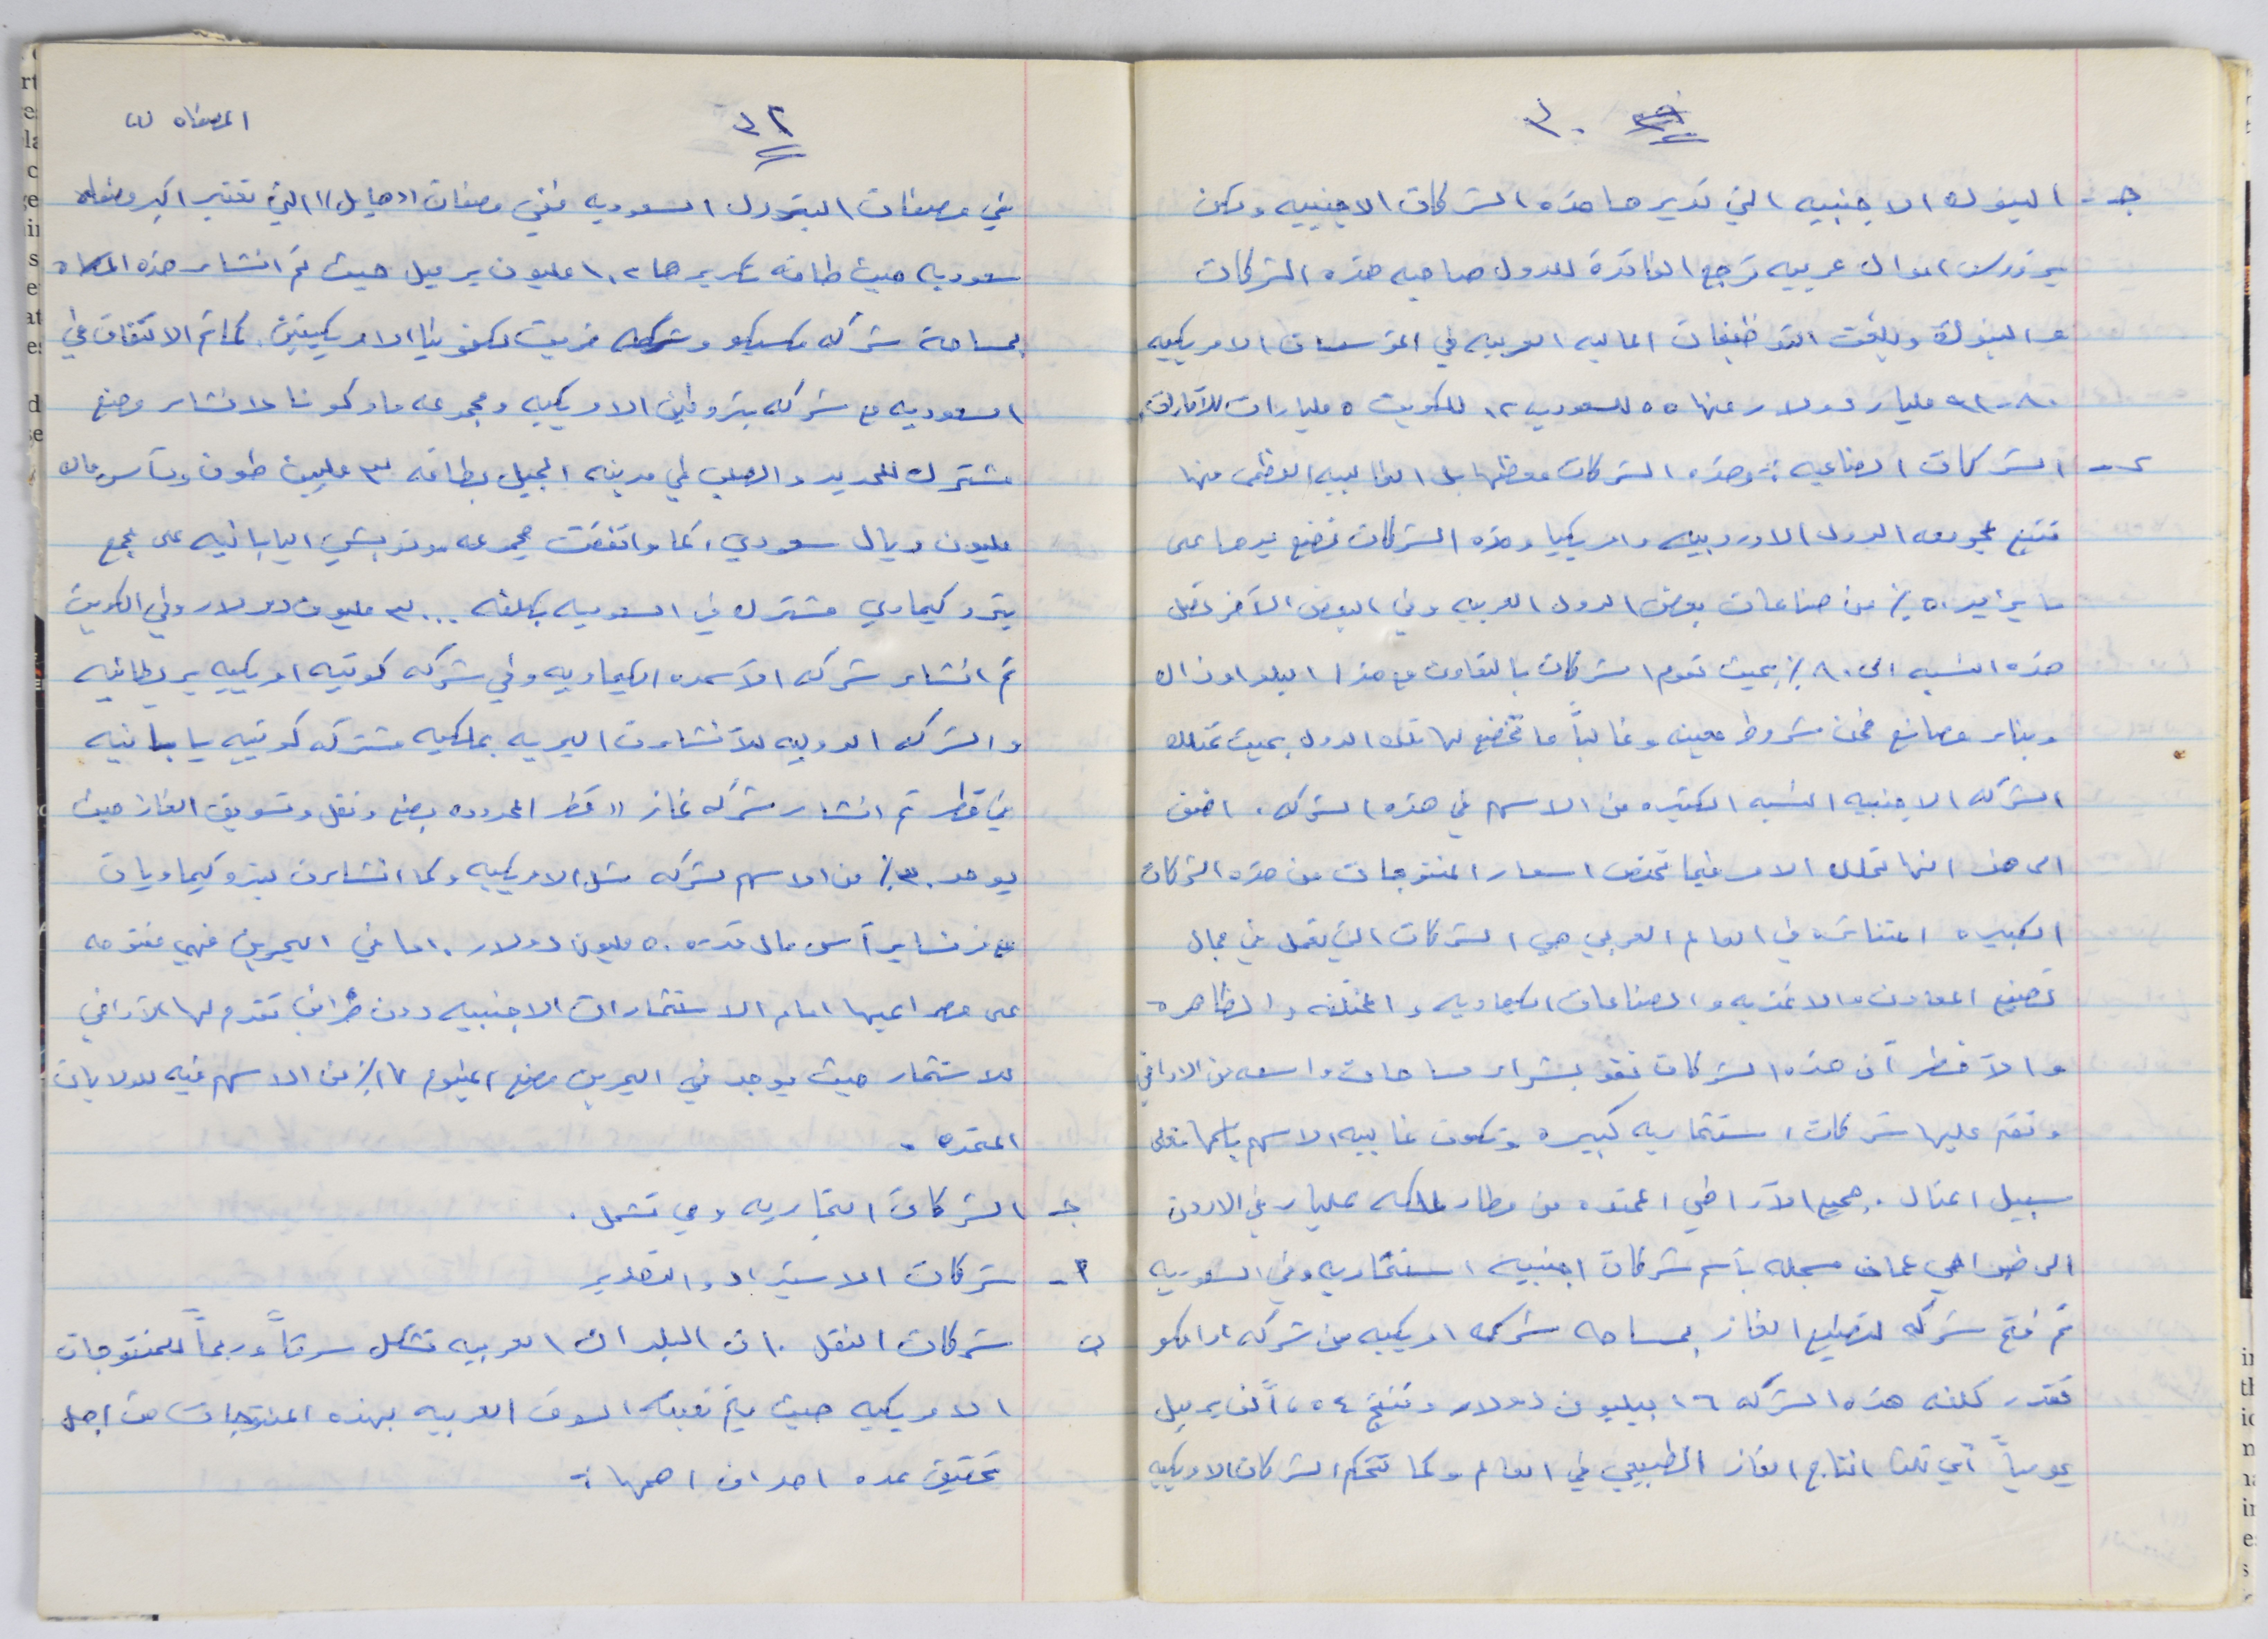 ٣٠
ج - البنوك الاجنبيه التي تديرها هذه الشركات الاجنبيه ولكن
برؤوس اموال عربيه ترجع الفائدة للدول صاحبه هذه الشركات
والبنوك وبلغت التوظيفات الماليه العربيه في المؤسسات الامريكيه
٨٠-٩١ مليار دولار منها ٥٥ للسعوديه ١٢ للكويت ٥ مليارات للأمارات
٢ - الشركات الصناعيه : وهذه الشركات معظمها بل الغالبيه العظمى منها
تتبع لمجموعه الدول الاوروبيه وامريكيا وهذه الشركات تضع يدها على
ما يزيد ٥٠٪ من صناعات بعض الدول العربيه وفي البعض الآخر تصل
هذه النسبه الى ٨٠٪ بحيث تقوم الشركات بالتعاون مع هذا البلد او ذاك
وبناء مصانع ضمن شروط معينه وغالباً ما تخضع لها تلك الدول بحيث تمتلك
الشركه الاجنبيه النسبه الكبيره من الاسهم في هذه الشركه. اضف
الى هذا انها تملك الامر فيما تختص اسعار المنتوجات من هذه الشركات
الكبيره المتناثره في العالم العربي هي الشركات التي تعمل في مجال
تصنيع المعادن والاغذيه والصناعات الكيماويه والمختلفه والظاهره
والأخطر أن هذه الشركات تقوم بشراء مساحات واسعه من الاراضي
وتقيم عليها شركات استثماريه كبيره وتكون غالبيه الاسهم باسمها فعلى
سبيل المثال. جميع الأراضي الممتده من مطار الملكه عليا في الاردن
الى ضواحي عمان مسجله بأسم شركات اجنبيه استثماريه وفي السعوديه
تم فتح شركه لتصنيع الغاز بمساحه شركه امريكيه من شركه ارامكو
تقدر كلفه هذه الشركه ١٦ بيليون دولار وتنتج ٥٤، ألف برميل
يومياً أي ثلث انتاج الغاز الطبيعي في العالم وكما تتحكم الشركات الامريكيه
٣٢
المصفاه
في مصفات البترول السعوديه ففي مصفات "جبيل" التي تعتبر اكبر مصفاه
سعوديه حيث طاقه تكريرها ١،٢ مليون برميل حيث تم انشاء هذه
بمساحة شركه تكسيكو وشركه الامريكيتين. كما تم الاتفاق في
السعوديه مع شركه الامريكيه ومجموعه لانشاء مصنع
مشترك للحديد والصلب في مدينه الجبيل بطاقه ٣ مليون طون وبرأس مال
مليون ريال سعودي، كما واتفقت مجموعه متوبيشي اليابانيه على مجمع
بتروكيماوي مشترك في السعوديه بكلفه ٣٠٠٠ مليون دولار وفي الكويت
تم انشاء شركه الأسمده الكيماويه وفي شركه كويتيه امريكيه بريطانيه
والشركه الدوليه للأنشاءات البريه بملكيه مشتركه كويتيه يابانيه
في قطر تم انشاء شركه غاز "قطر المحدوده بصنع ونقل وتسويق الغاز حيث
يوجد ٣٠٪ من الاسهم لشركه شل الامريكيه وكما انشاءت بتروكيماويات
مع فرنسا برأس مال قدره ٥٠ مليون دولار. اما في البحرين فهي مفتوحه
على مصراعيها امام الاستثمارات الاجنبيه دون ضرائب تقدم لها الأراضي
للاستثمار حيث يوجد في البحرين مصنع المنيوم ١٧٪ من الاسهم فيه للولايات
المتحده.
ج - الشركات التجاريه وهي تشمل.
أ - شركات الاستيراد والتصدير
ب شركات النقل. ان البلدان العربيه تشكل سوقاً وربحاً للمنتوجات
الامريكيه حيث يتم تعبئه السوق العربيه بهذه المنتوجات من اجل
تحقيق عده اهداف اهمها :-